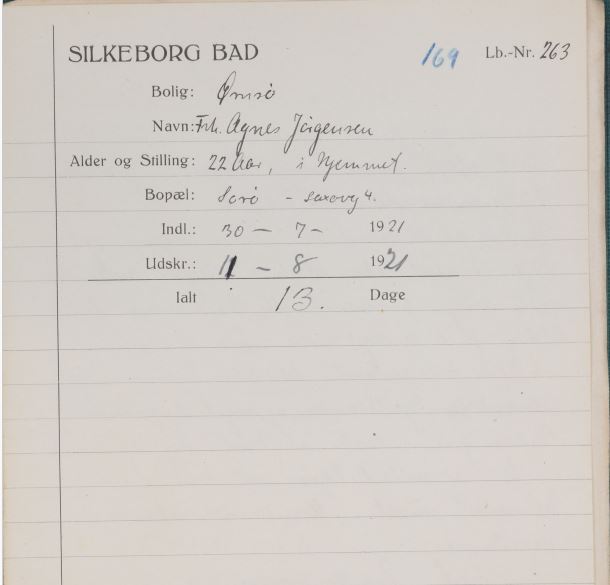 SILKEBORG BAD 169 Lb.-Nr. 263
Bolig: Ørnsö
Navn: Frk. Agnes Jörgensen
Alder og Stilling: 22 Aar, i Hjemmet.
Bopæl: Sorö - Saxovej 4.
Indl.: 30 — 7 - 1921
Udskr.: 11 - 8 1921
Ialt 13. Dage